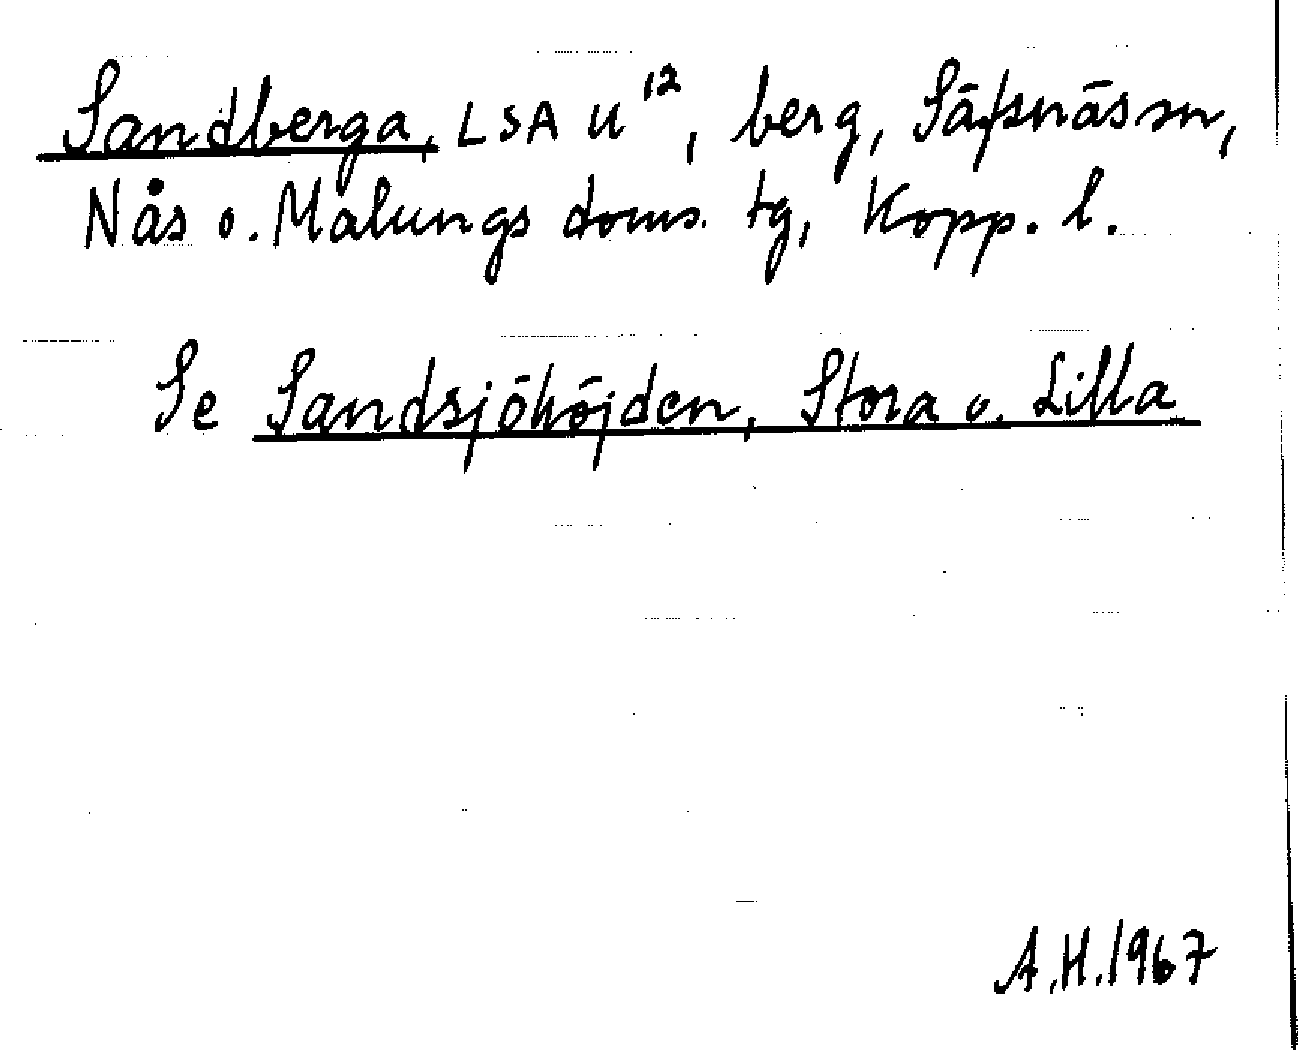 Sandberga, LSA U¹², berg, Säfsnäs sn,
Nås o. Malungs doms. tg, Kopp. l.
Se Sandsjöhöjden, Stora o. Lilla
A.H. 1967